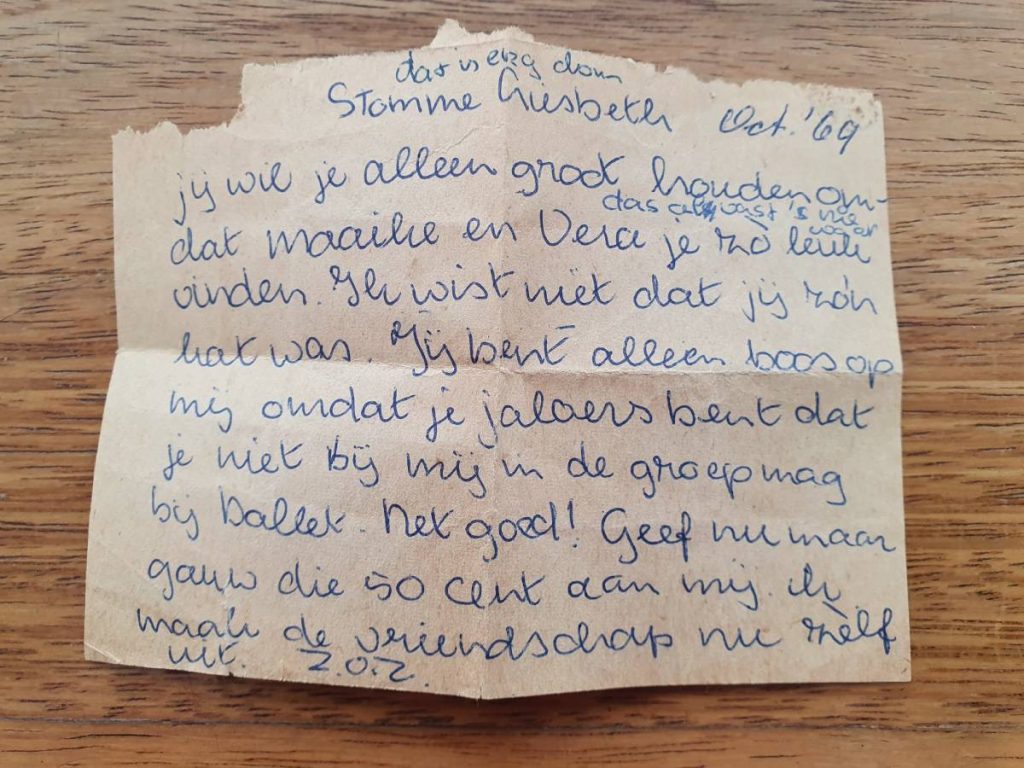 dat is erg dom
Stomme Liesbeth Oct. '69
jij wil je alleen groot houden om-
das 's nie
waar
dat maaike en Vera je zò leuk
vinden. Ik wist niet dat jij zo'n
kat was. Jij bent alleen boos op
mij omdat je jaloers bent dat
je niet bij mij in de groep mag
bij Ballet. Net goed! Geef nu maar
gauw die 50 cent aan mij. ik
maak de vriendschap nu zèlf
uit. Z.O.Z.